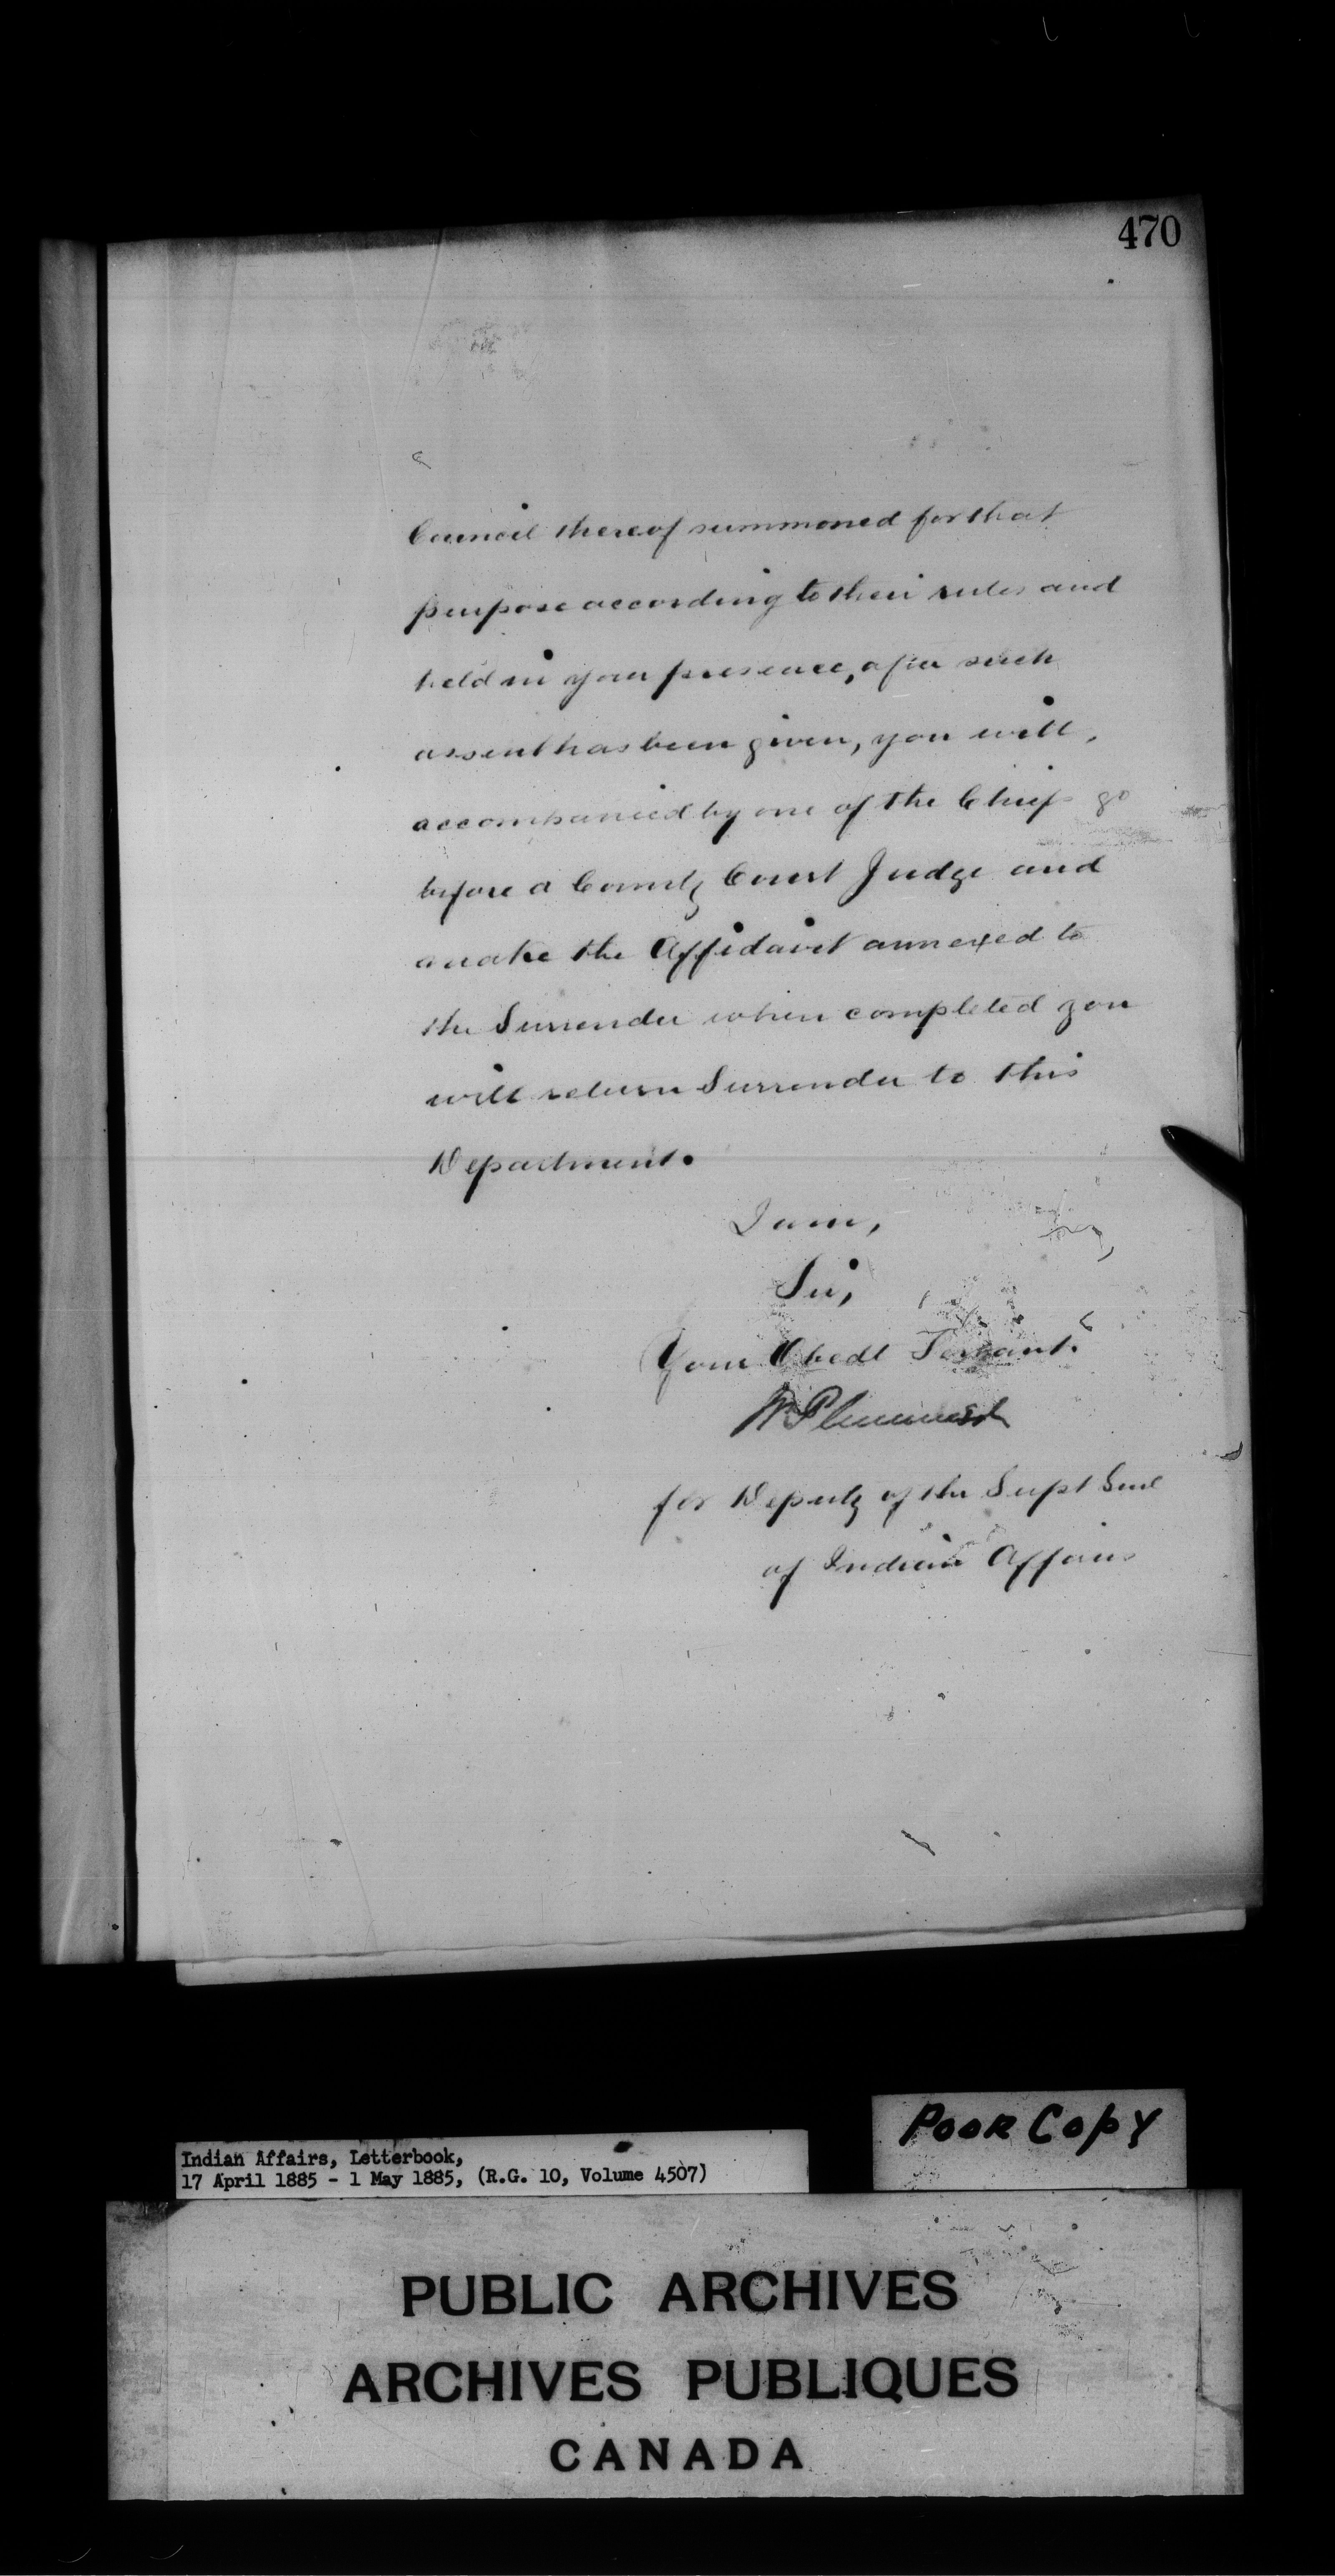 470
Council thereof summoned for that
purpose according to their rules and
held in your presence, after such
assent has been given, you will,
accompanied by one of the Chiefs go
before a County Court Judge and
make the Affidavit annexed to
the Surrender when completed you
will return Surrender to this
Department.
I am,
Sir,
Your Obedt Servant.
W. Plummer
for Deputy of the Supt Genl
of Indian Affairs
Poor Copy
Indian Affairs, Letterbook,
17 April 1885 - 1 May 1885, (R.G. 10, Volume 4507)
PUBLIC ARCHIVES
ARCHIVES PUBLIQUES
CANADA